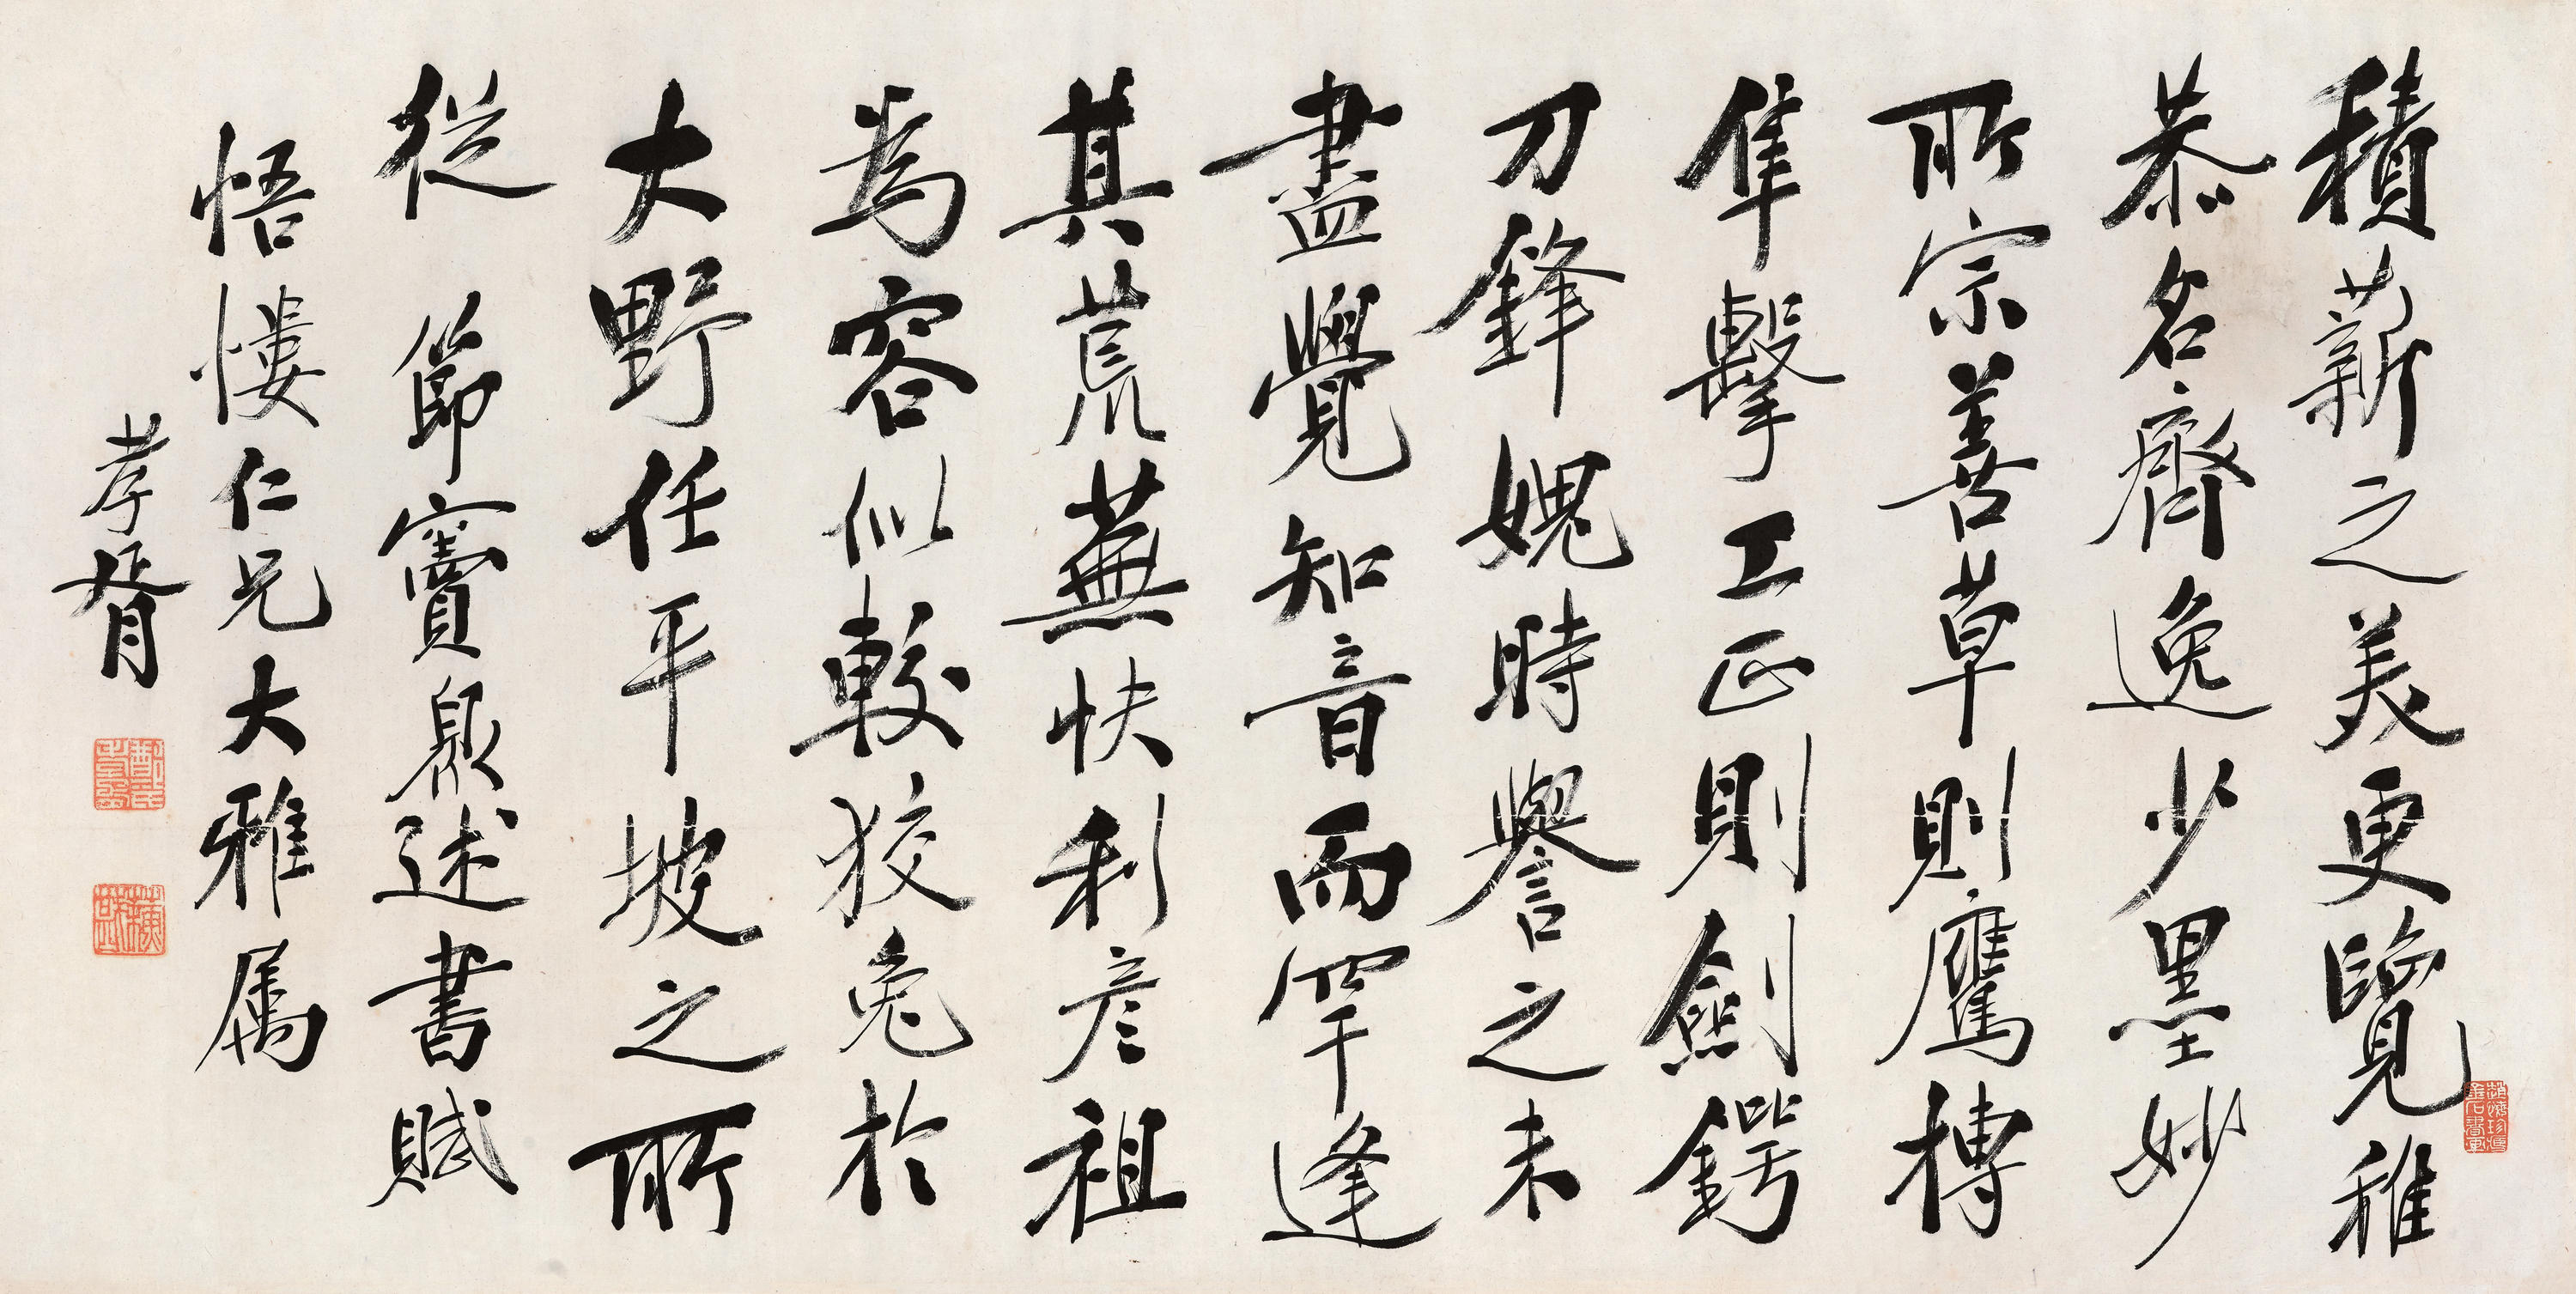 積薪之美更覽稚
恭名齊逸少墨妙
所宗善草則鷹摶
隼擊工正則劍鍔
刀鋒媿時譽之未
盡覺知音而罕逢
其荒蕪快利彥祖
為容似較狡兔於
大野任平坡之所
從 節竇臮述書賦
悟慺仁兄大雅属
孝胥